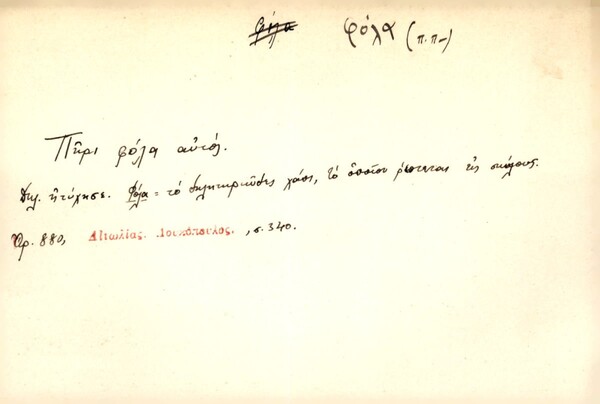 φόλα φόλα (π.π–)
Πῆρι φόλα αὐτός.
Δηλ. ἠτύχησε. Φόλα = τὸ δηλητηριῶδες χάπι, τὸ ὁποῖον ρίπτεται εἰς σκύλους.
Ἀρ. 880, Αἰτωλίας. Λουκόπουλος. , σ. 340.